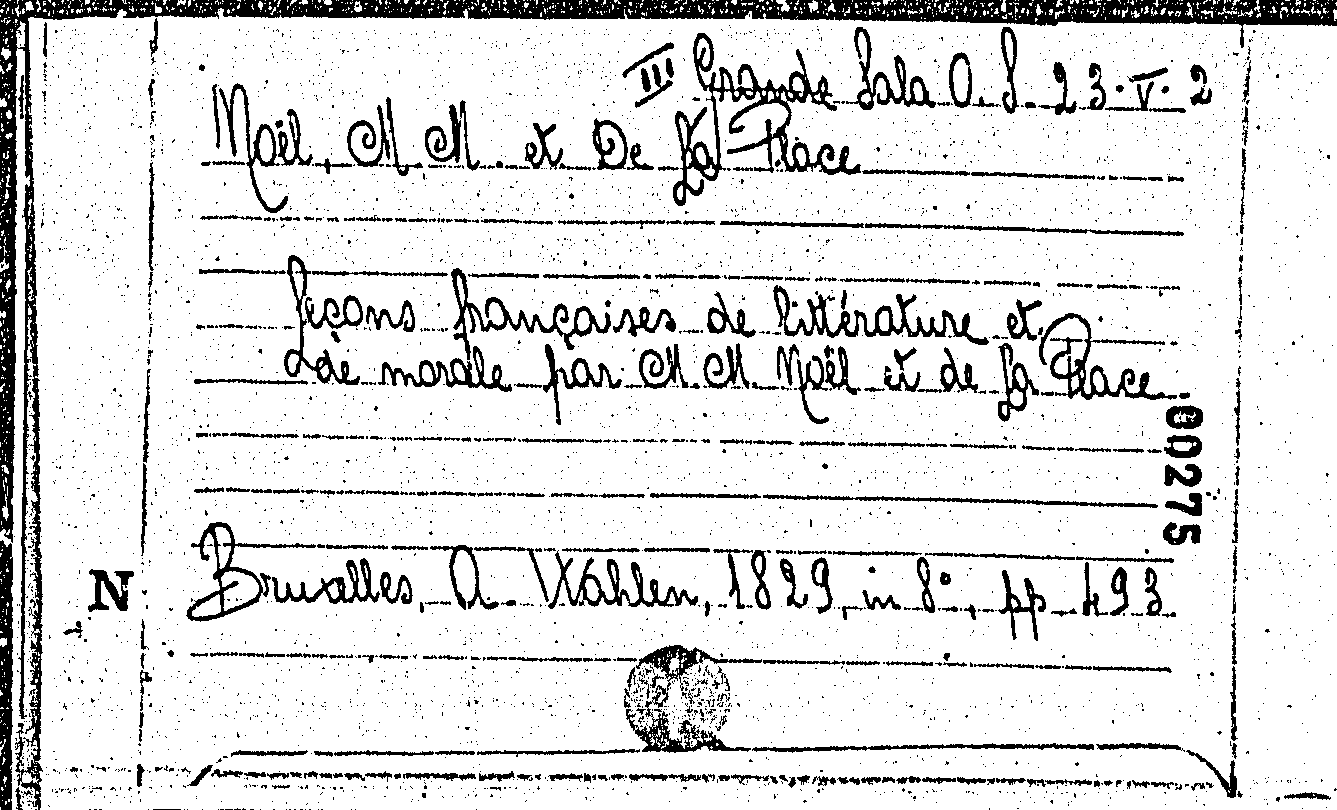 III Grande Sala O. S. 23.V.2
Noël, M M. et De La Place
Leçons françaises de littérature et
de morale par M. M. Noël et de La Place
00275
N
Bruxelles, A. Wahlen, 1829, in 8°, pp 493